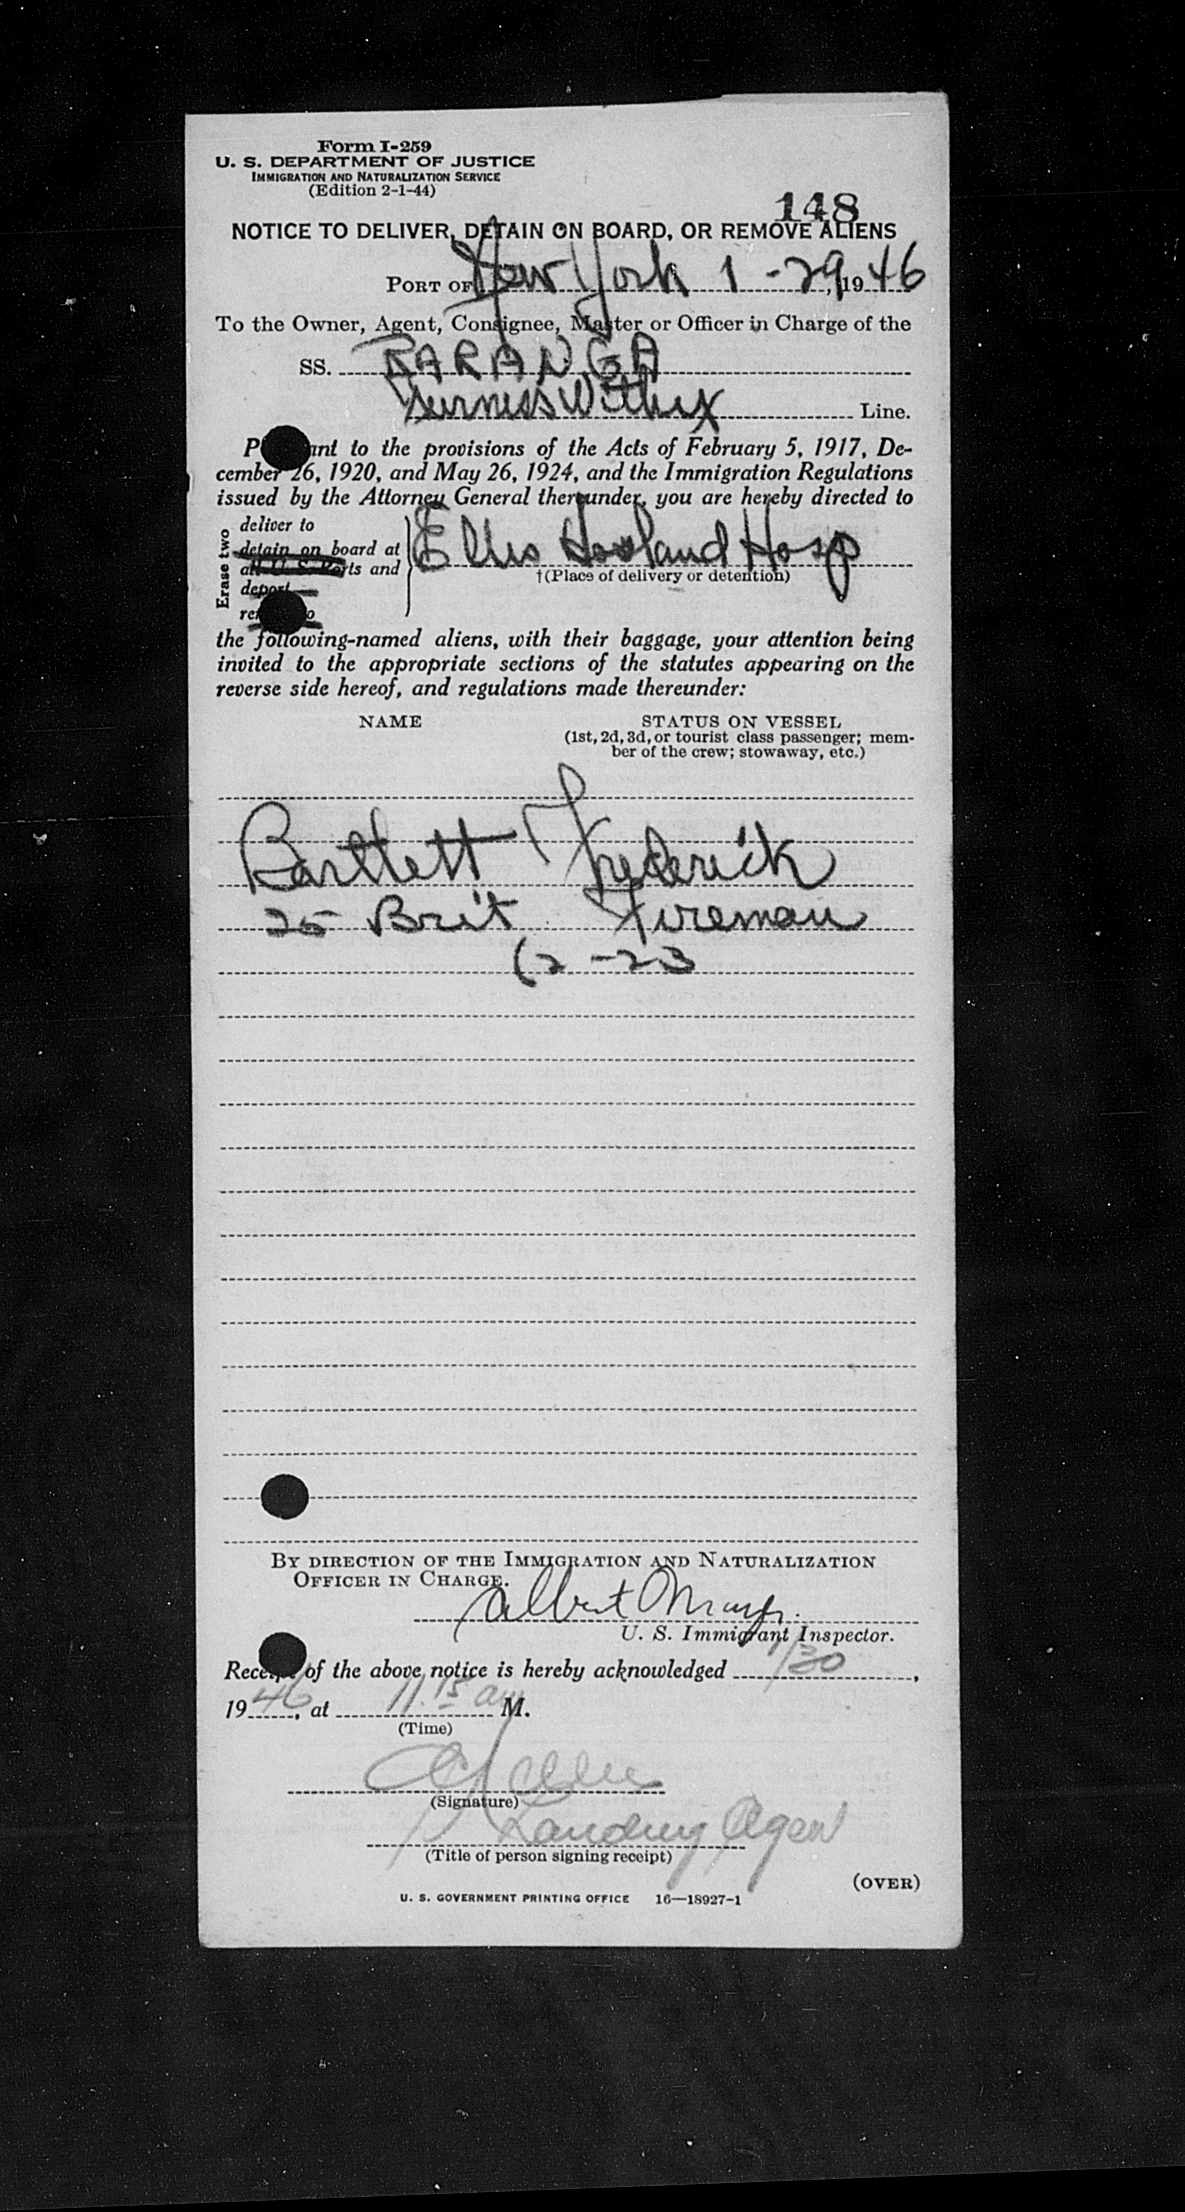 Form I-259
U. S. DEPARTMENT OF JUSTICE
IMMIGRATION AND NATURALIZATION SERVICE
(Edition 2-1-44)
148
NOTICE TO DELIVER, DETAIN ON BOARD, OR REMOVE ALIENS
PORT OF New York 1-29, 1946
To the Owner, Agent, Consignee, Master or Officer in Charge of the
SS. RARANGA
Furness Withy Line.
P ant to the provisions of the Acts of February 5, 1917, De-
cember 26, 1920, and May 26, 1924, and the Immigration Regulations
issued by the Attorney General thereunder, you are hereby directed to
Erase two
deliver to
detain on board at
all U. S. Ports and
deport
re o
Ellis Island Hosp
†(Place of delivery or detention)
the following-named aliens, with their baggage, your attention being
invited to the appropriate sections of the statutes appearing on the
reverse side hereof, and regulations made thereunder:
NAME
STATUS ON VESSEL
(1st, 2d, 3d, or tourist class passenger; mem-
ber of the crew; stowaway, etc.)
Bartlett Frederick
25 Brit Fireman
(2-23
BY DIRECTION OF THE IMMIGRATION AND NATURALIZATION
OFFICER IN CHARGE.
Albert
U. S. Immigrant Inspector.
Receipt of the above notice is hereby acknowledged 1/30,
1946, at 11.15 am M.
(Time)
(Signature)
Landing Agent
(Title of person signing receipt)
(OVER)
U. S. GOVERNMENT PRINTING OFFICE 16—18927-1